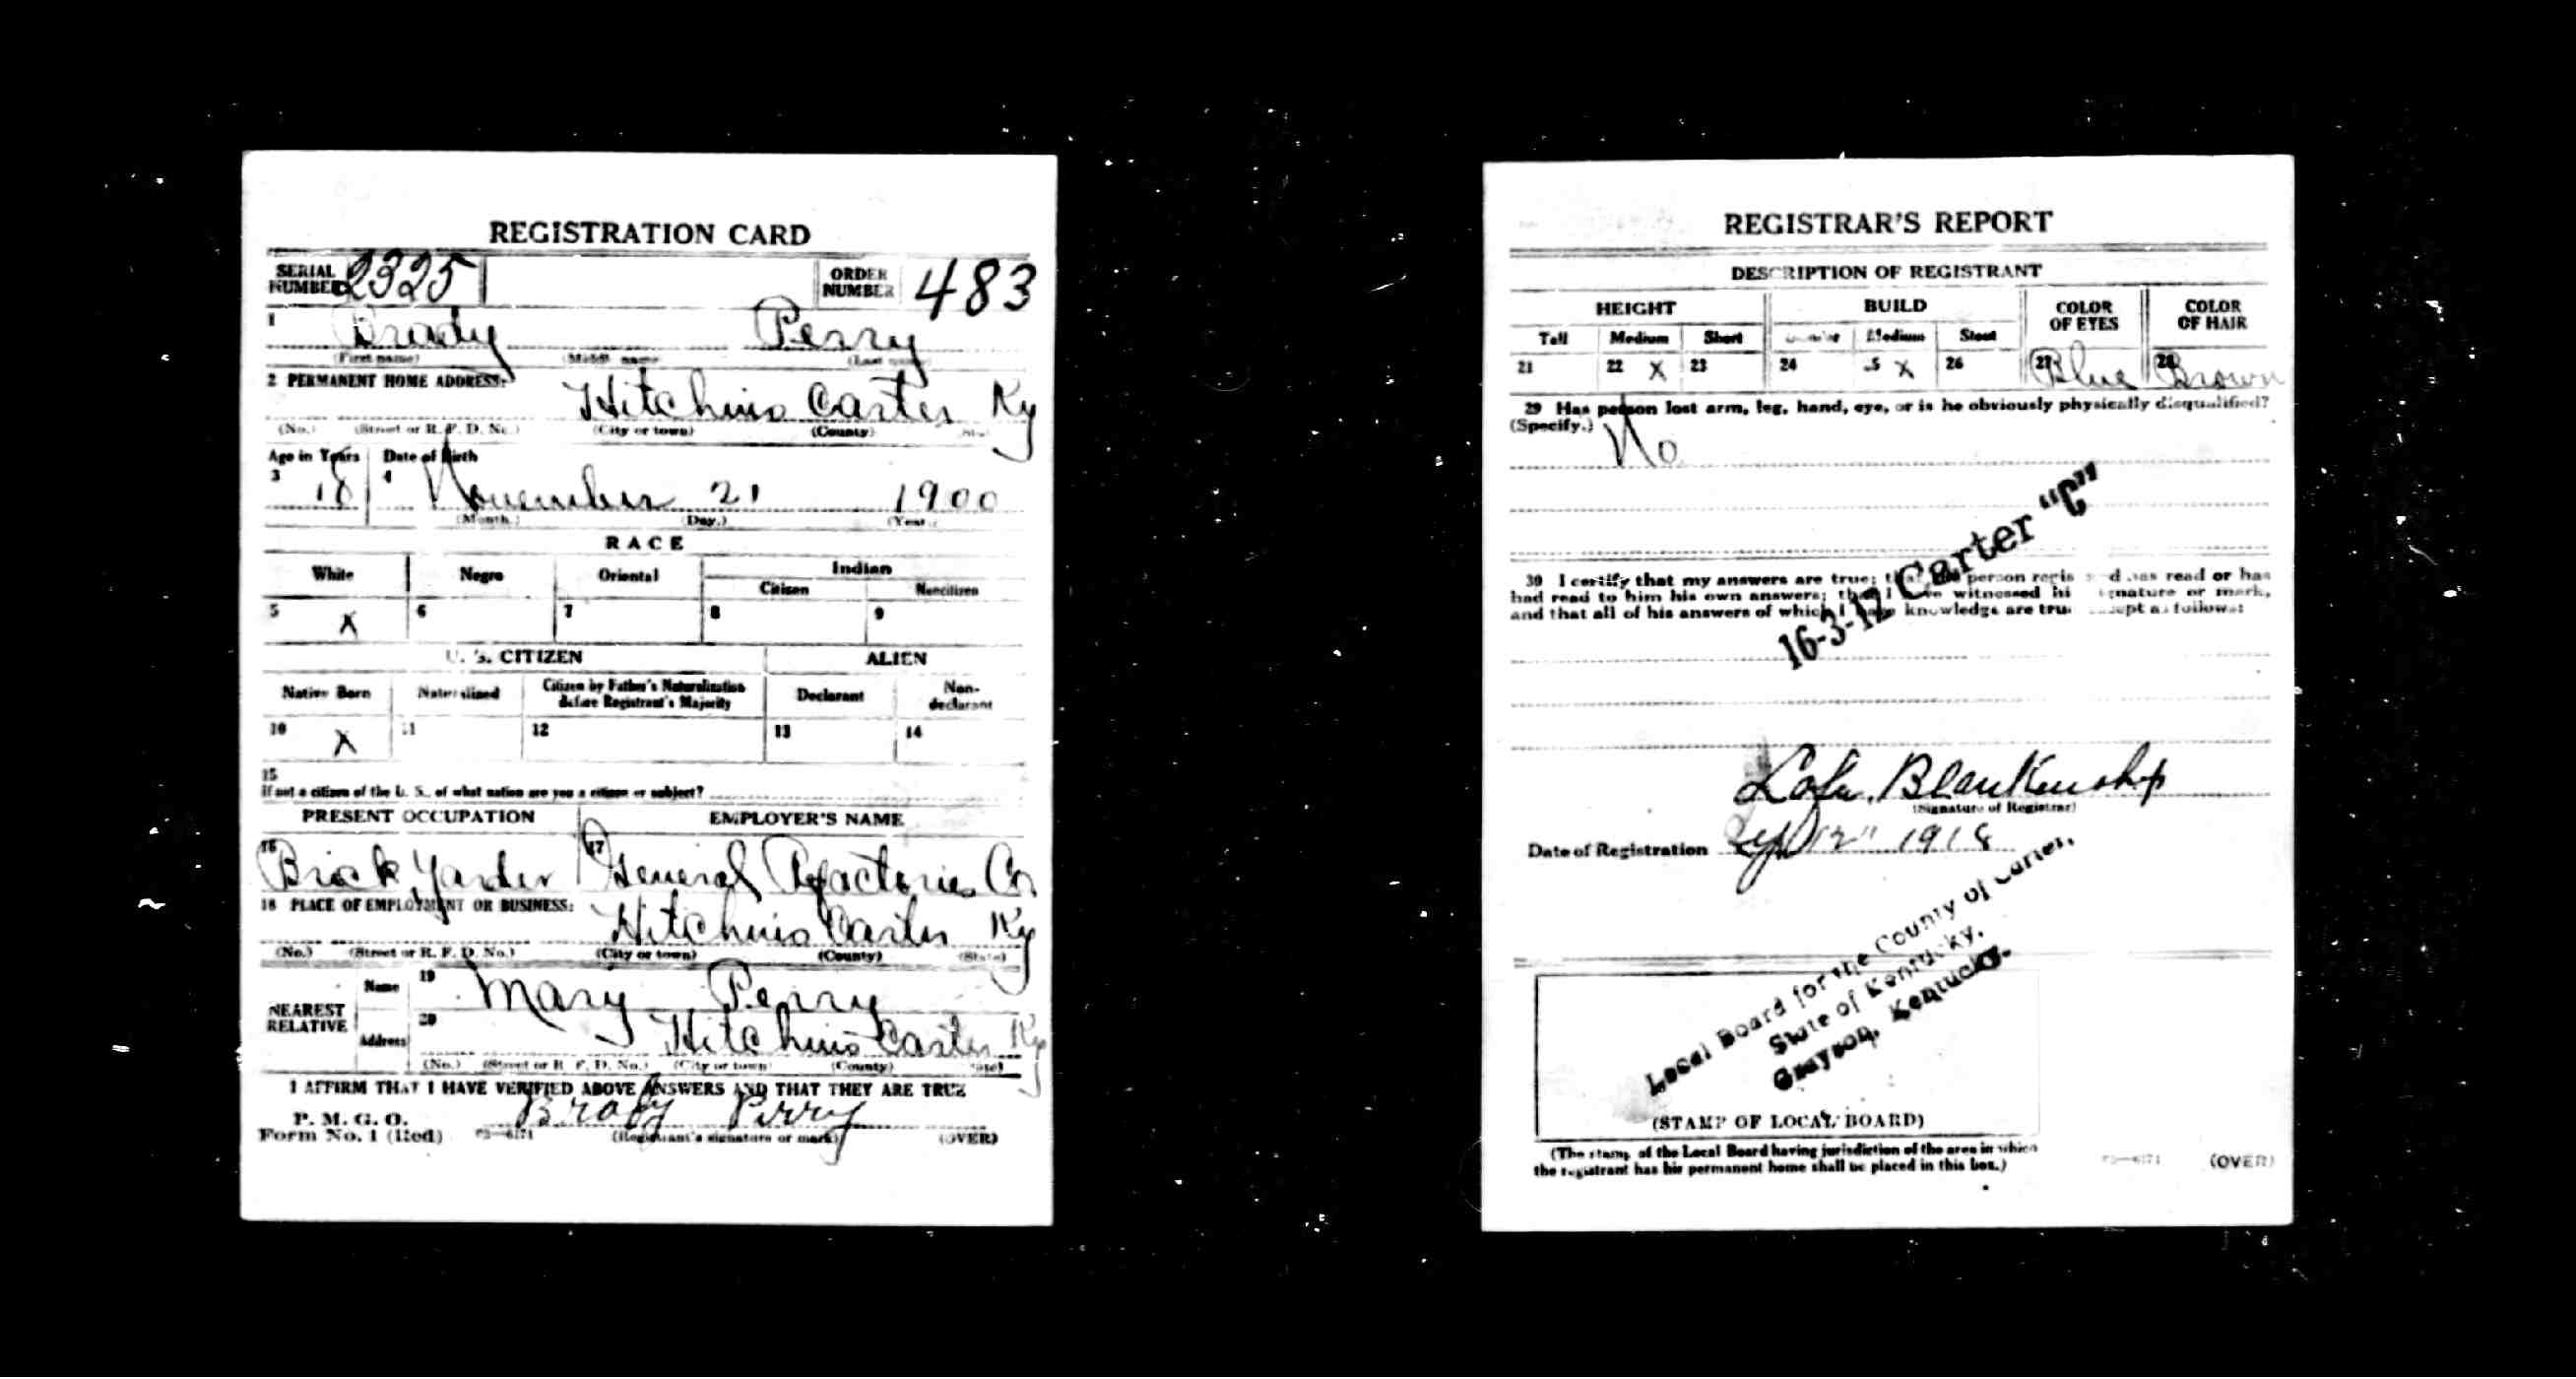 REGISTRATION CARD
SERIAL NUMBER 2325 ORDER NUMBER 483
1 Brady Perry
(First name) (Middle name) (Last name)
2 PERMANENT HOME ADDRESS:
Hitchins Carter Ky
(No.) (Street or R. F. D. No.) (City or town) (County) (State)
Age in Years Date of Birth
3 18 4 November 21 1900
(Month.) (Day.) (Year.)
RACE
White Negro Oriental Indian
Citizen Noncitizen
5 X 6 7 8 9
U. S. CITIZEN ALIEN
Native Born Naturalized Citizen by Father's Naturalization Before Registrant's Majority Declarant Non-declarant
10 X 11 12 13 14
15
If not a citizen of the U. S., of what nation are you a citizen or subject?
PRESENT OCCUPATION EMPLOYER'S NAME
16 Brick Yarder 17 General Rfactories Co
18 PLACE OF EMPLOYMENT OR BUSINESS:
Hitchins Carter Ky
(No.) (Street or R. F. D. No.) (City or town) (County) (State)
NEAREST RELATIVE Name 19 Mary Perry
Address 20 Hitchins Carter Ky
(No.) (Street or R. F. D. No.) (City or town) (County) (State)
I AFFIRM THAT I HAVE VERIFIED ABOVE ANSWERS AND THAT THEY ARE TRUE
P. M. G. O.
Form No. 1 (Red) Brady Perry
(Registrant's signature or mark) (OVER)
REGISTRAR'S REPORT
DESCRIPTION OF REGISTRANT
HEIGHT BUILD COLOR OF EYES COLOR OF HAIR
Tall Medium Short Slender Medium Stout
21 22 X 23 24 25 X 26 27 Blue 28 Brown
29 Has person lost arm, leg, hand, eye, or is he obviously physically disqualified?
(Specify.) No
16-3-17 Carter "C"
30 I certify that my answers are true; that the person registered has read or has
had read to him his own answers; that I have witnessed his signature or mark,
and that all of his answers of which I have knowledge are true, except as follows:
Blankenship
(Signature of Registrar)
Date of Registration Sep 12" 1918
Local Board for the County of Carter,
State of Kentucky,
Grayson, Kentucky.
(STAMP OF LOCAL BOARD)
(The stamp of the Local Board having jurisdiction of the area in which
the registrant has his permanent home shall be placed in this box.)
(OVER)